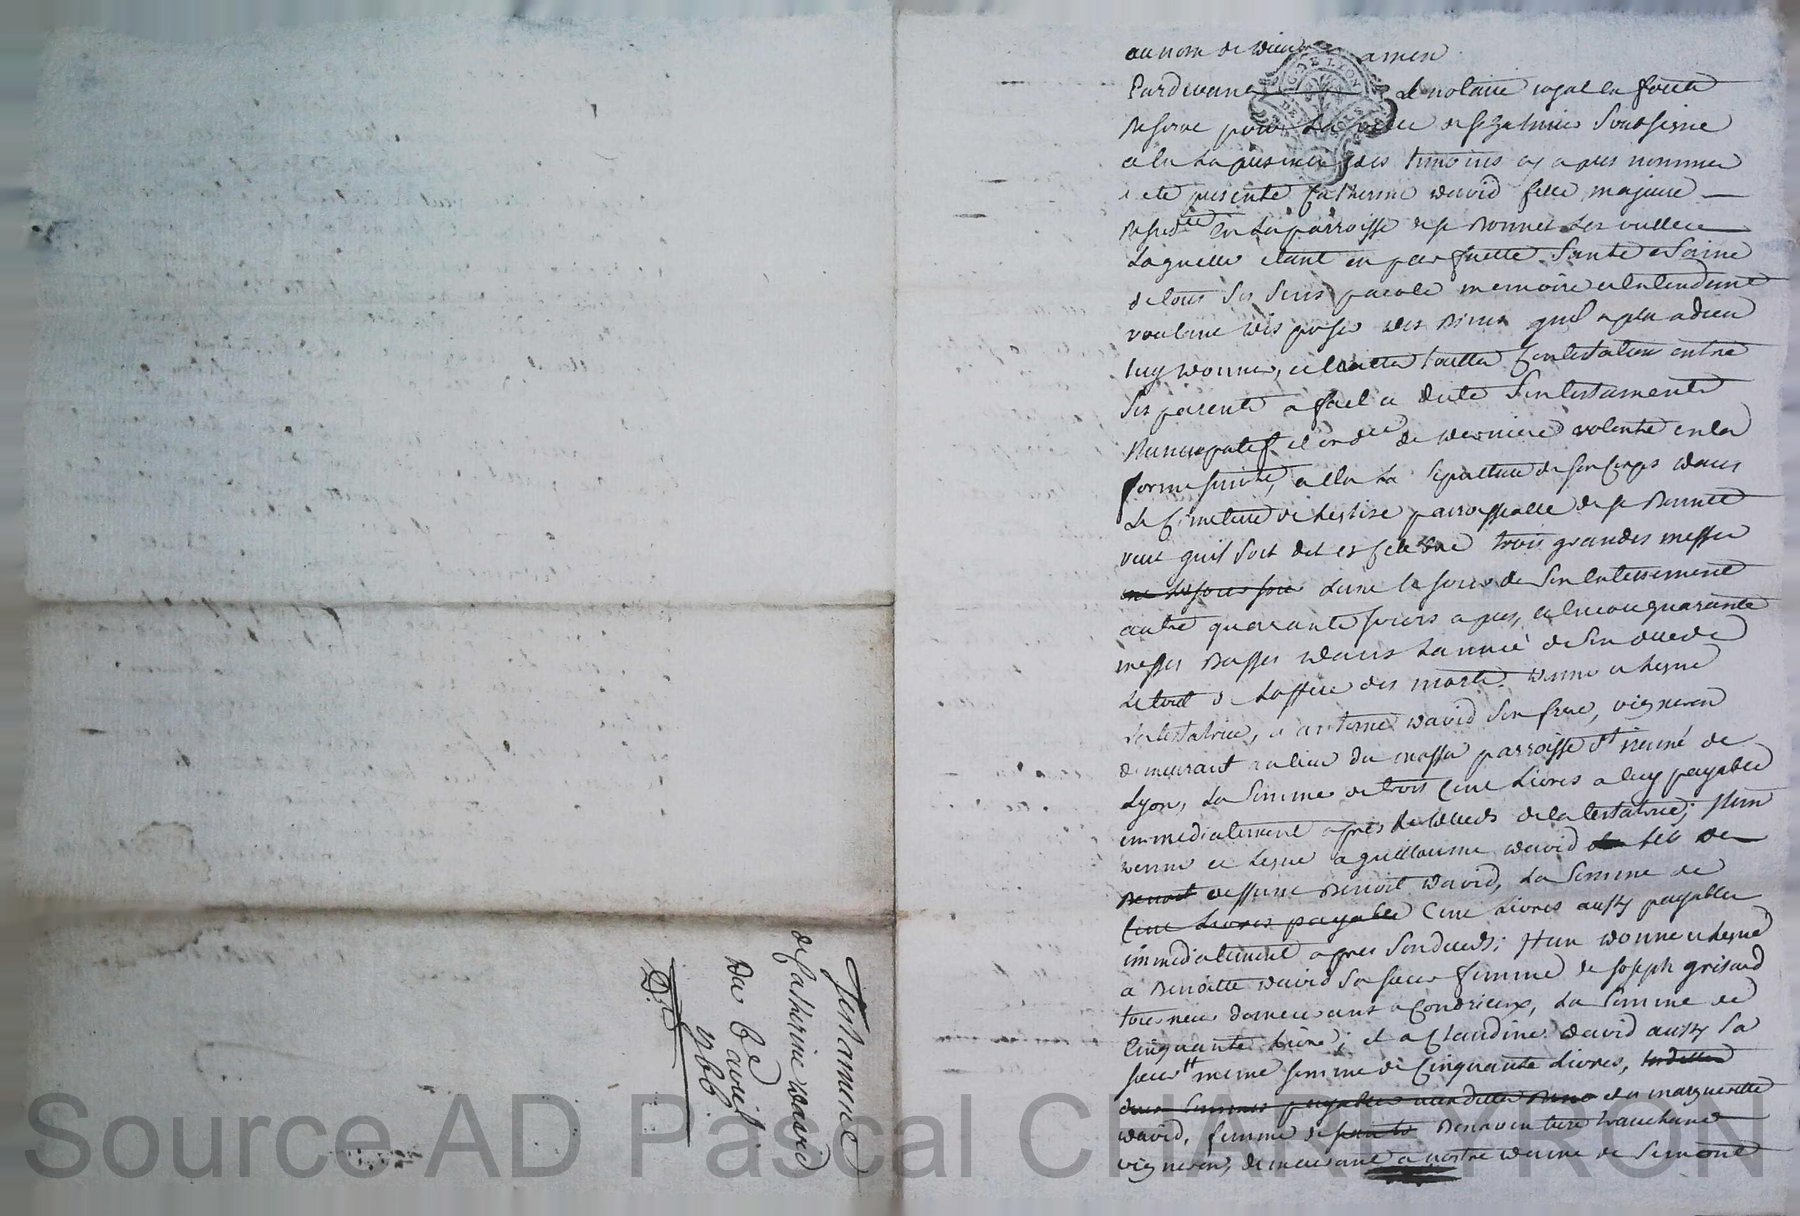 au nom de Dieu amen
Pardevant Le notaire royal en forest
Reservé pour La ville de st galmier soussigné
et en La presence des temoins cy apres nommes
a eté presente Catherine david fille majeure
Resid.te en La parroisse de st Bonnet Les oulles
Laquelle etant en parfaitte santé et saine
de tous ses sens parole memoire et entendement
voulant disposer des Biens quil a plu a dieu
luy donner, et toutte Contestation entre
ses parents a fait et dicté son testament
Nuncupatif et ord.ce de derniere volonté en la
forme suivte, a elu La sepulture de son Corps dans
Le Cimetiere de Leglise parroissialle de st Bonnet
veut quil soit dit et Celebré trois grandes messes
Lune le jour de son enterrement
autre quarante jours apres, et encore quarante
messes Basses dans Lannée de son decede
Le tout de Loffice des morts. donne et legue
la testatrice, a antoine david son frere, vigneron
demeurant au lieu du massu parroisse st irenné de
Lyon, La somme de trois Cent Livres a luy payable
immediatement apres le deceds de la testatrice; Item
donne et legue a guillaume david fils de
Benoit deffunt Benoit david, La somme de
Cent Livres payable Cent Livres aussy payable
immediatement apres son deceds; Item donne et legue
a Benoitte david sa sœur femme de joseph grisard
tourneur demeurant a Condrieux, La somme de
Cinquante livres; et a Claudine david aussy sa
sœur meme somme de Cinquante Livres,
et a margueritte
david, femme de Bonaventure tranchand
vigneron, demeurant a nostre dame de Semons
Testament
de Catherine david
Du 6e avril
1766